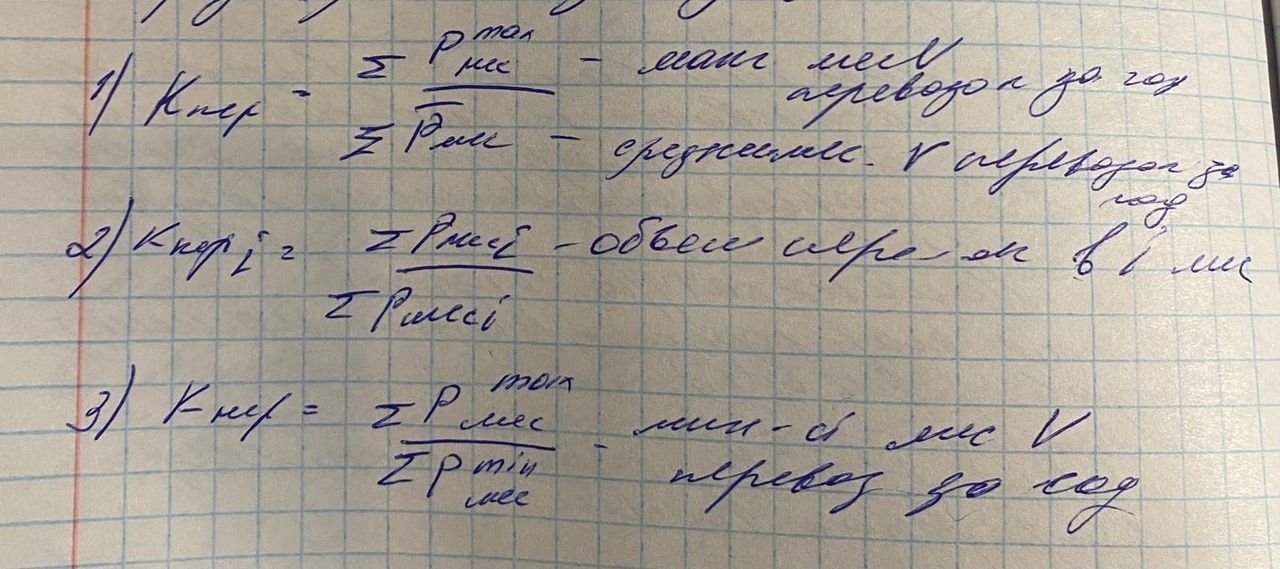 1) Кнер = Σ Pмес max - макс мес V
перевозок за год
Σ P̅мес - среднемес. V перевозок за
год
2) Кнер i = Σ Pмес i - объем пере-ок в i мес
Σ Pмес i
3) Кнер = Σ Pмес max
Σ Pмес min - мин-й мес V
перевоз за год